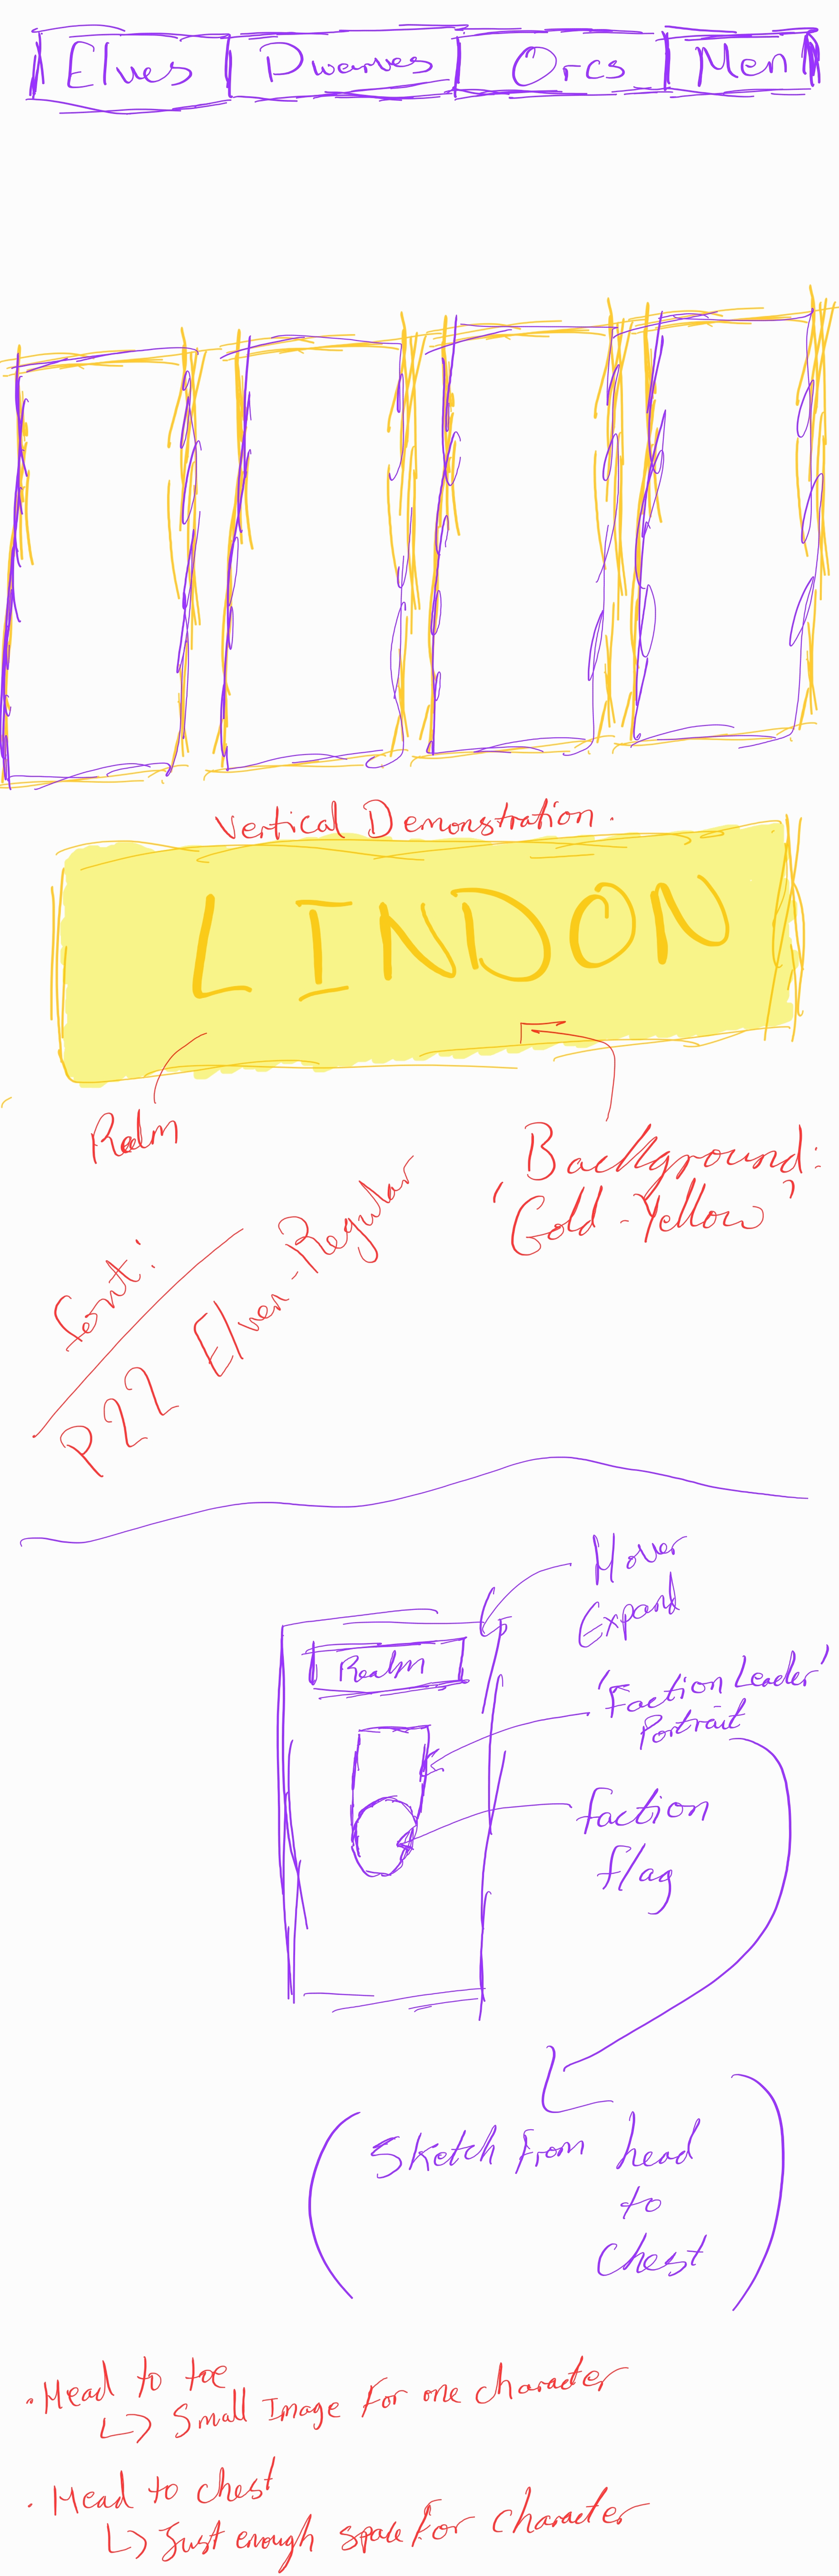 Elves Dwarves Orcs Men
Vertical Demonstration.
LINDON
Realm
Background:
'Gold-Yellow'
font:
P22 Elven-Regular
Hover
Expand
Realm
'Faction Leader'
Portrait
faction
flag
(Sketch from head
to
chest)
· Head to toe
↳ Small Image for one character
· Head to chest
↳ Just enough space for character